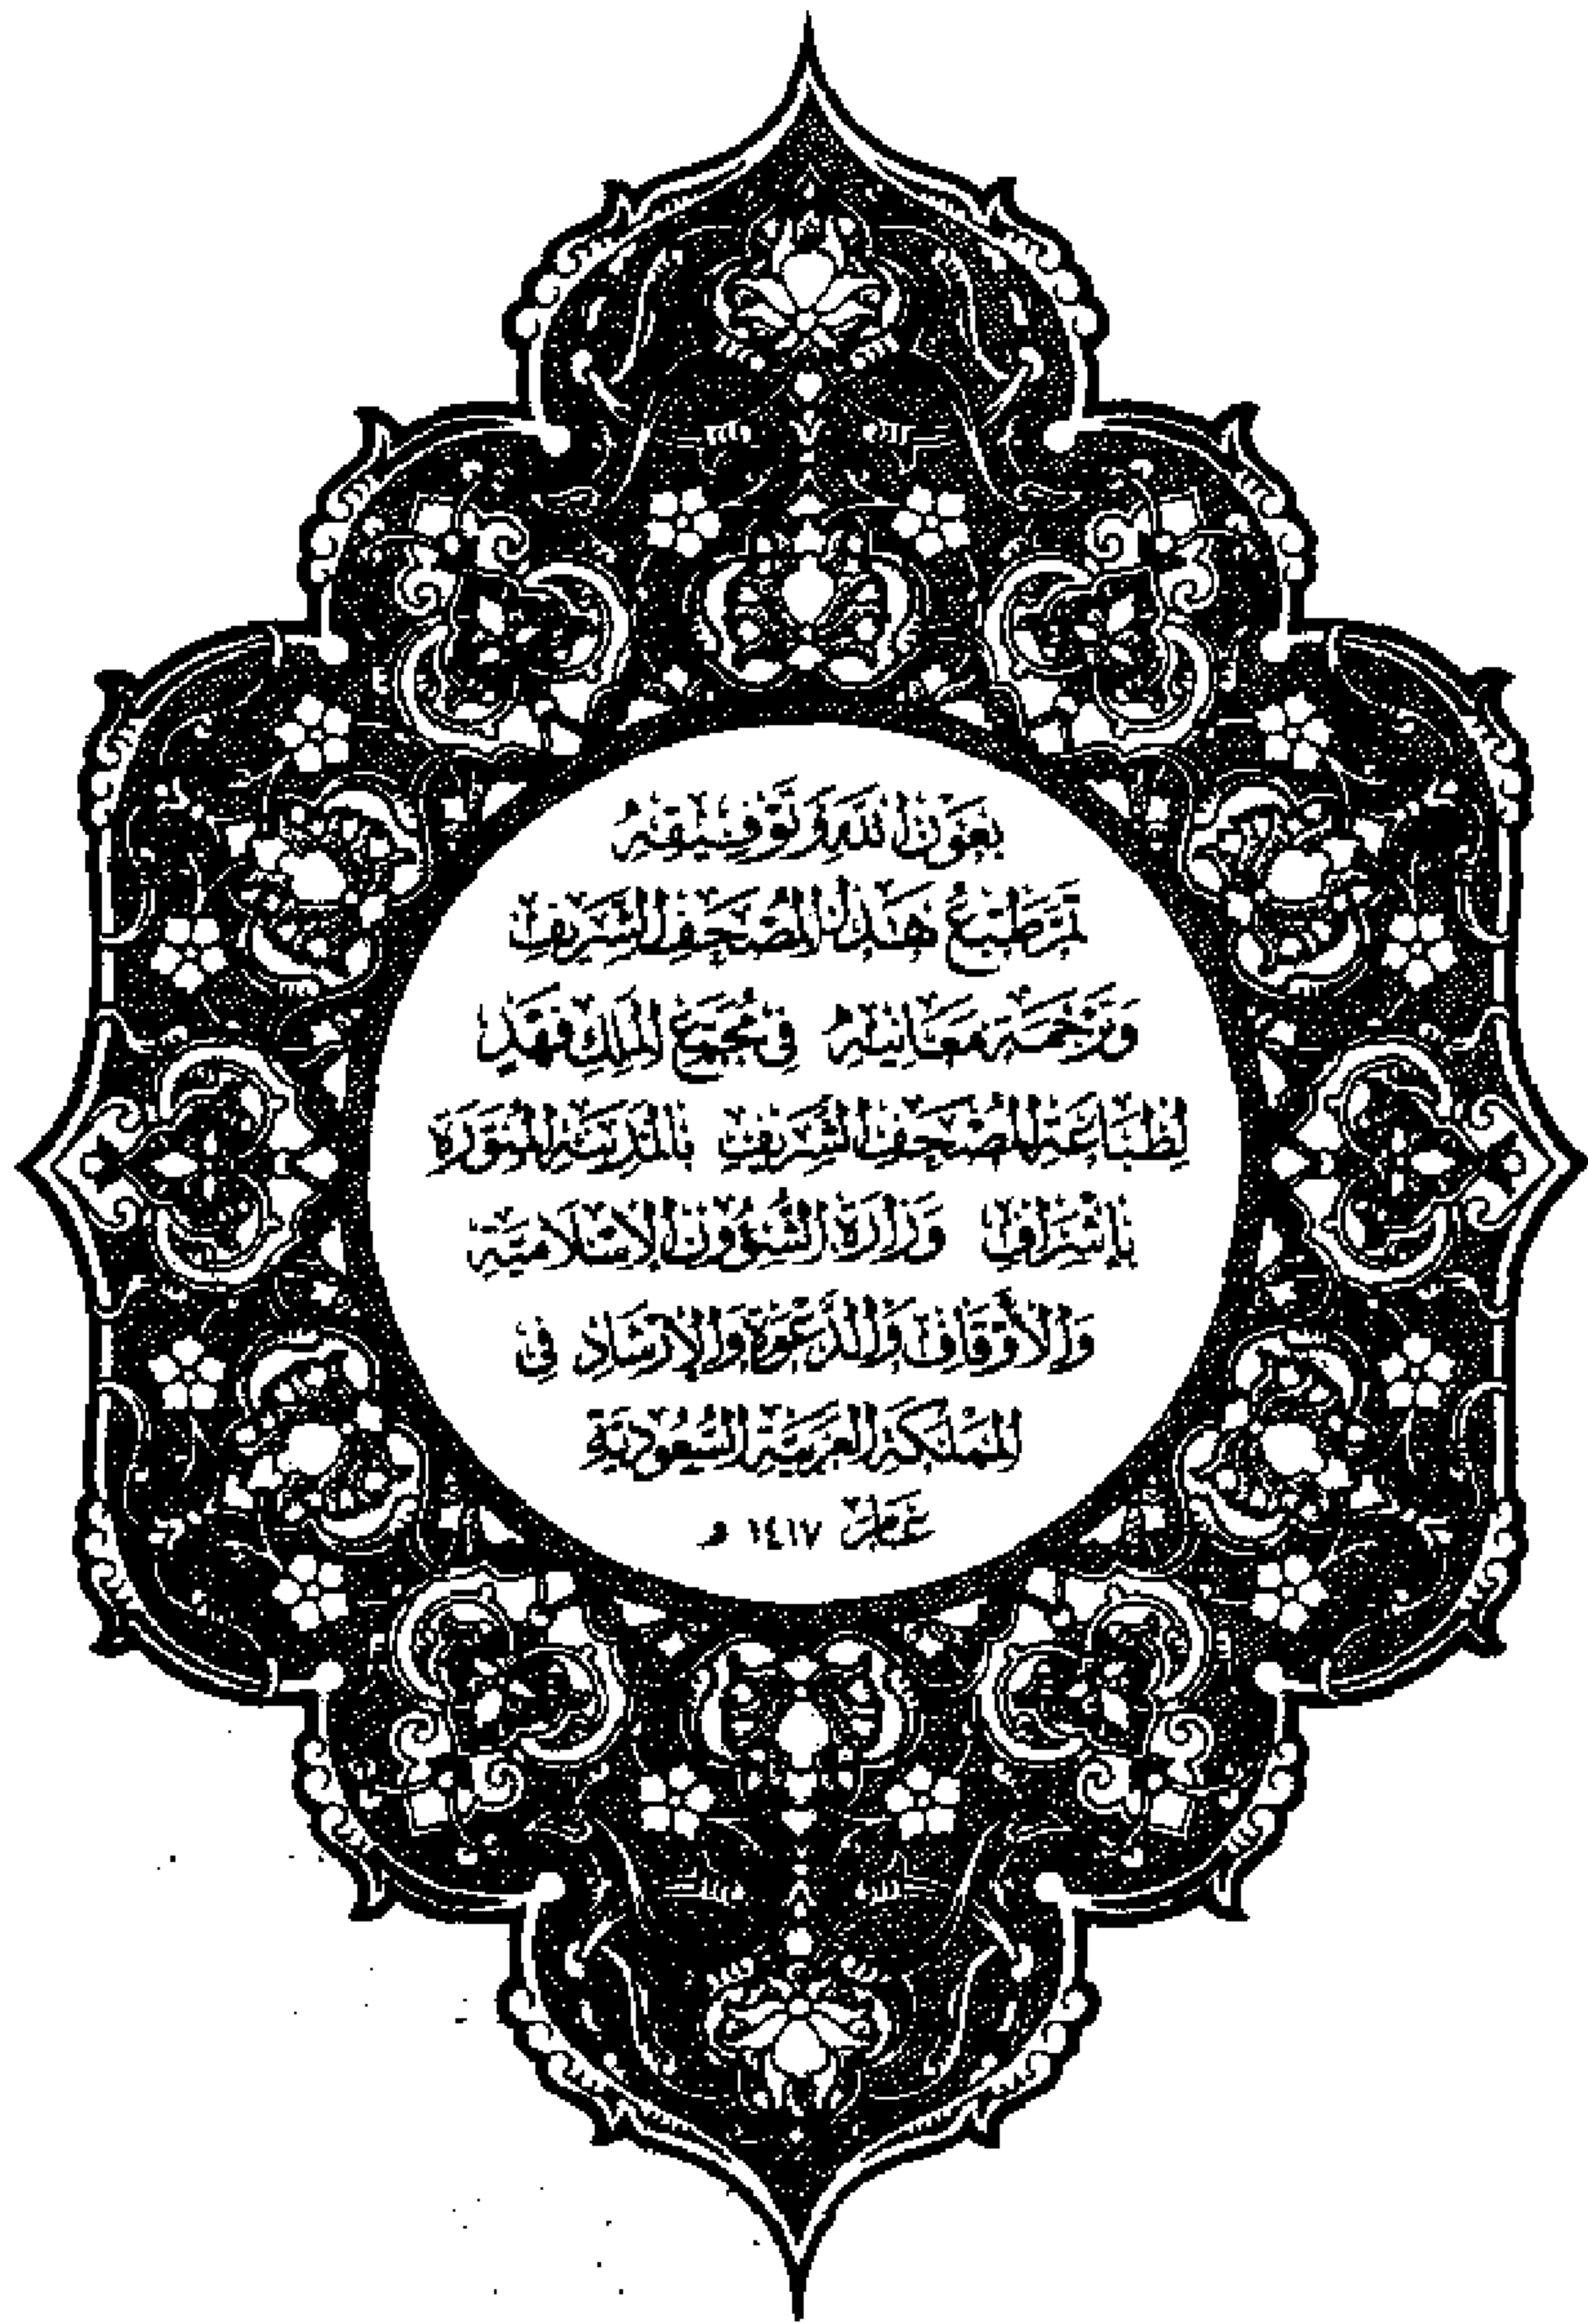 بِعَوْنِ اللهِ وَتَوْفِيقِهِ
تَمَّ طَبْعُ هَذَا الْمُصْحَفِ الشَّرِيفِ
وَتَرْجَمَةِ مَعَانِيهِ فِي مُجَمَّعِ الْمَلِكِ فَهْدٍ
لِطِبَاعَةِ الْمُصْحَفِ الشَّرِيفِ بِالْمَدِينَةِ الْمُنَوَّرَةِ
بِإِشْرَافِ وَزَارَةِ الشُّؤُونِ الْإِسْلَامِيَّةِ
وَالْأَوْقَافِ وَالدَّعْوَةِ وَالْإِرْشَادِ فِي
الْمَمْلَكَةِ الْعَرَبِيَّةِ السُّعُودِيَّةِ
عَامَ ١٤١٧ هـ